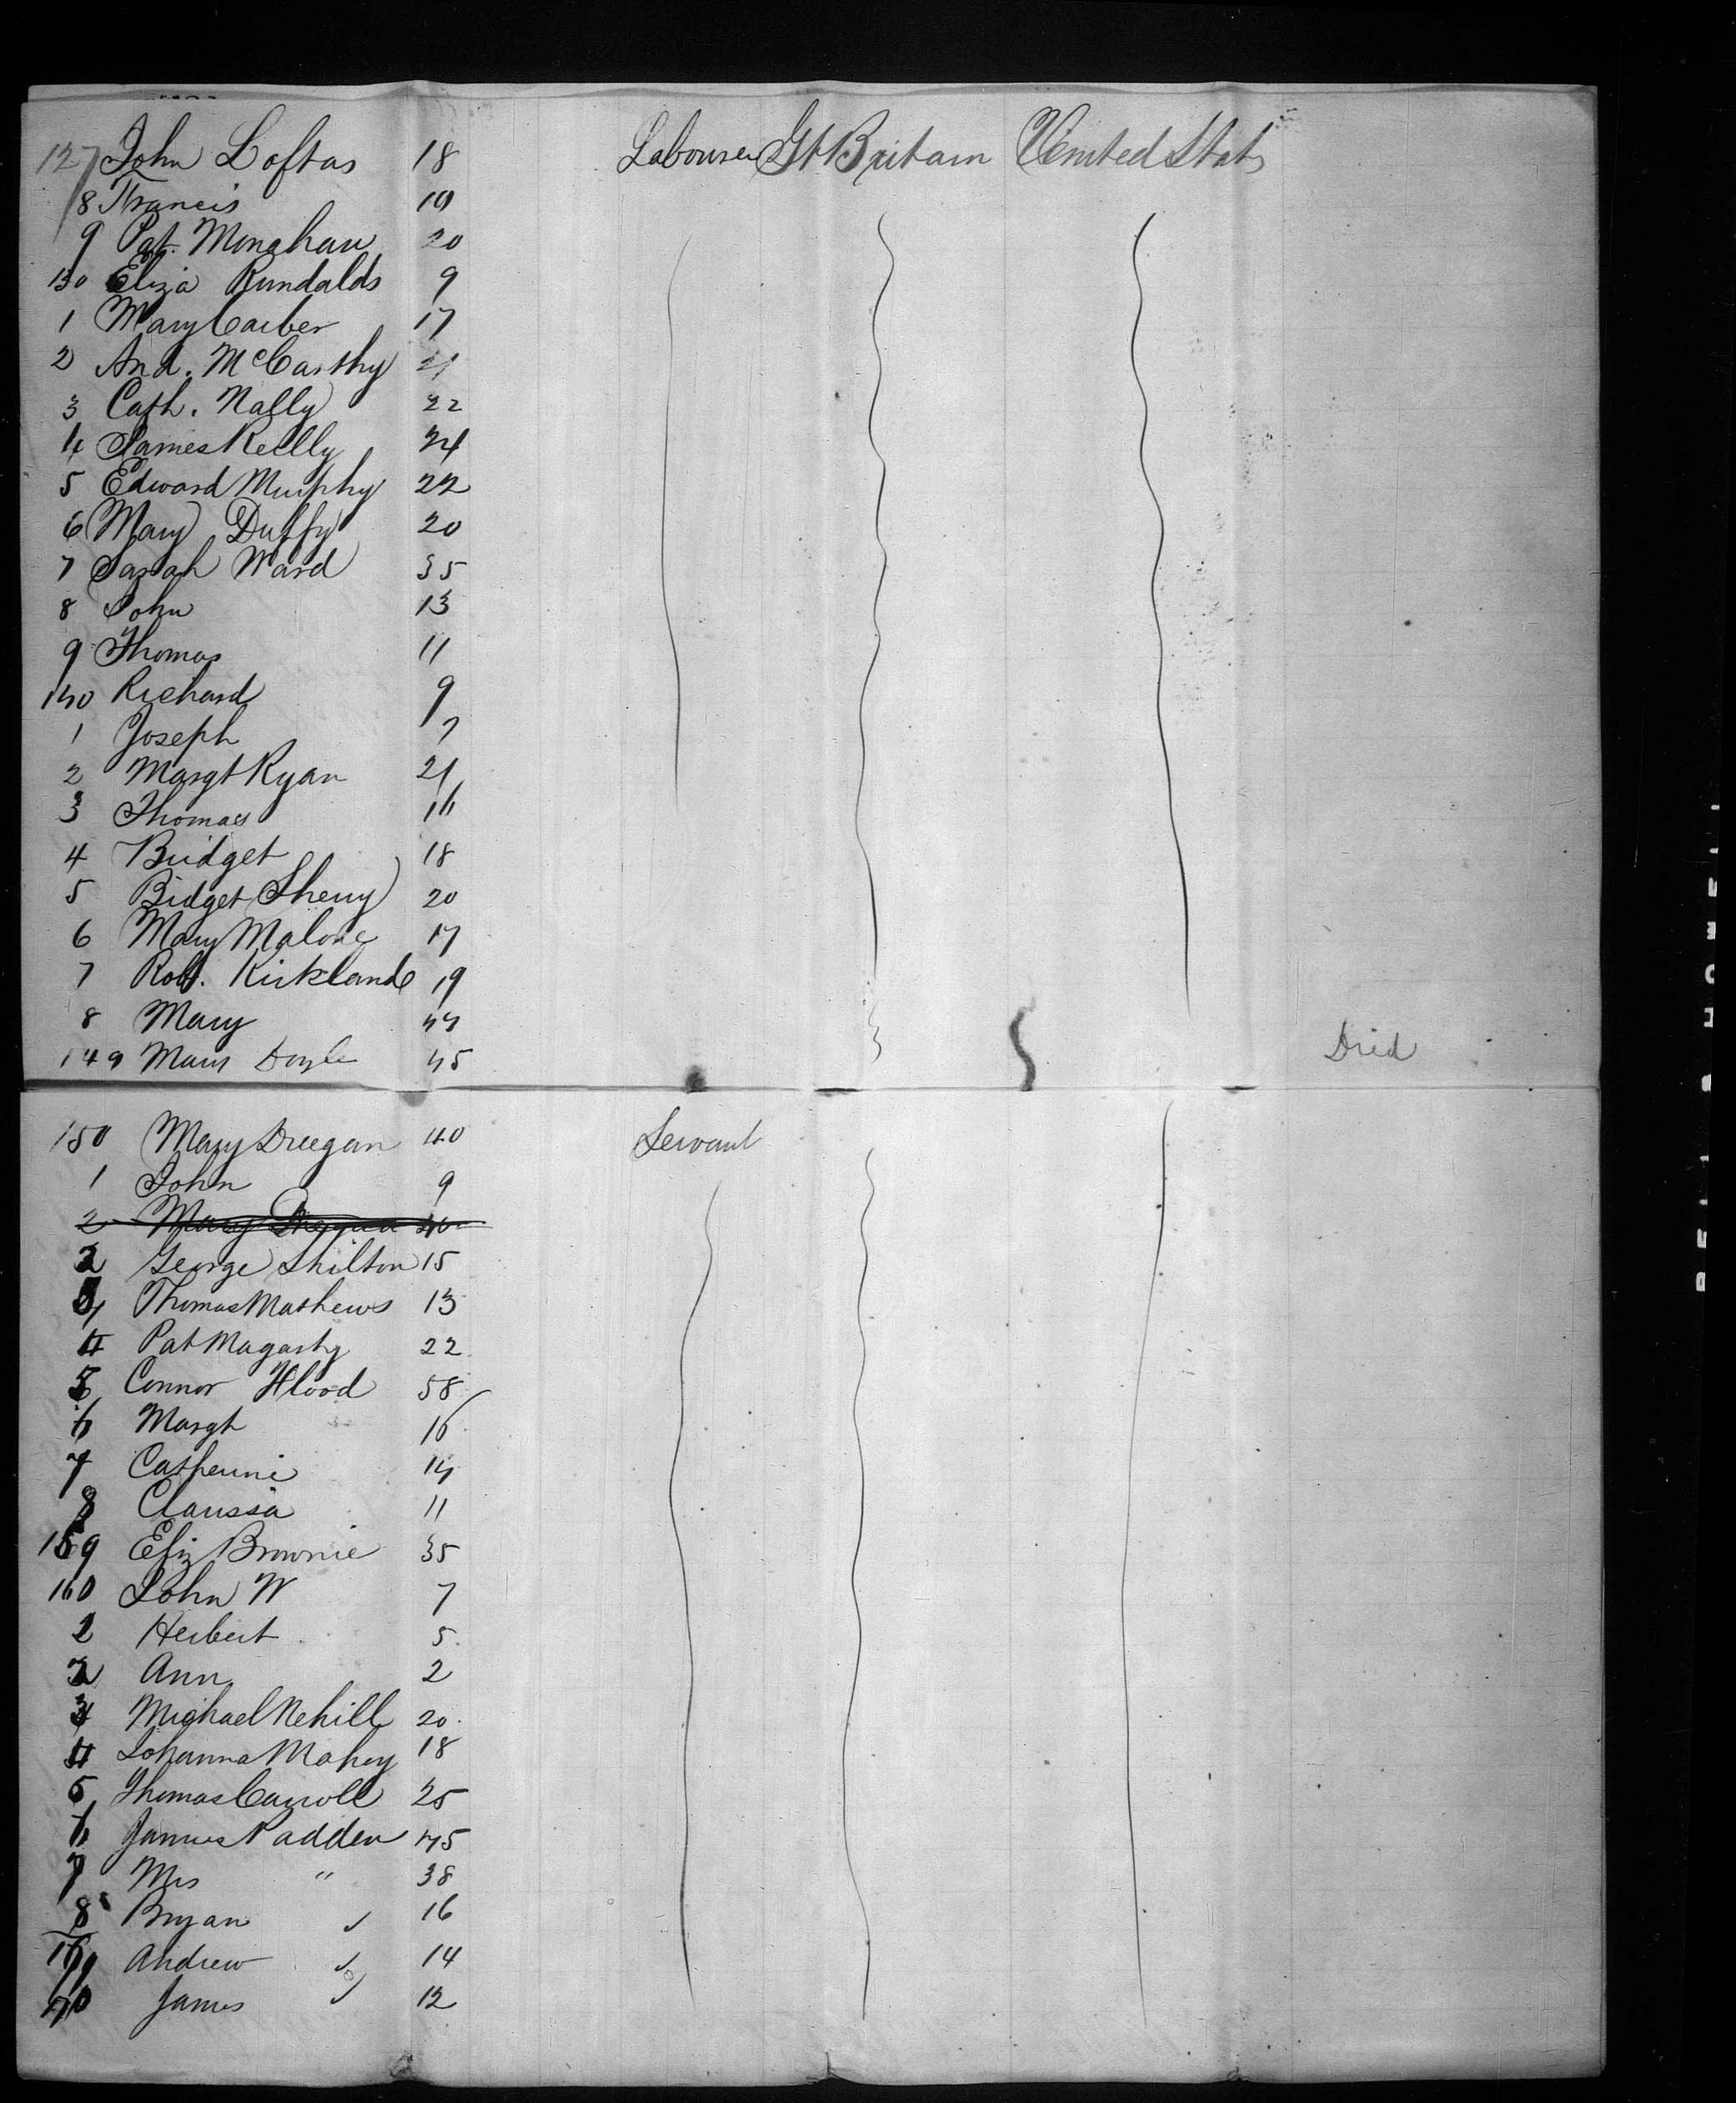 127 John Loftas 18 Labourer Gt Britain United Stats
8 Francis 10
9 Pat. Monahan 20
130 Eliza Rundalds 9
1 Mary Carber 17
2 And. McCarthy 21
3 Cath. Nally 22
4 James Reilly 24
5 Edward Murphy 22
6 Mary Duffy 20
7 Sarah Ward 35
8 John 13
9 Thomas 11
140 Richard 9
1 Joseph 7
2 Margt Ryan 21
3 Thomas 16
4 Bridget 18
5 Bidget Sherry 20
6 Mary Malone 17
7 Robt. Kirkland 19
8 Mary
149 Mary Doyle 45 Died
150 Mary Dreegan 40 Servant
1 John 9
2 Mary 40
2 George Shilton 15
Thomas Mathews 13
4 Pat Magarty 22
5 Connor Flood 58
6 Margt 16
7 Catherine 14
8 Clarissa 11
159 Eliz Brownie 35
160 John W 7
Herbert 5
2 Ann 2
3 Michael Nehill 20
4 Johanna Mahey 18
5 Thomas Carroll 25
6 James Padden 45
7 Mrs " 38
8 Bryan 16
169 Andrew 14
70 James 12